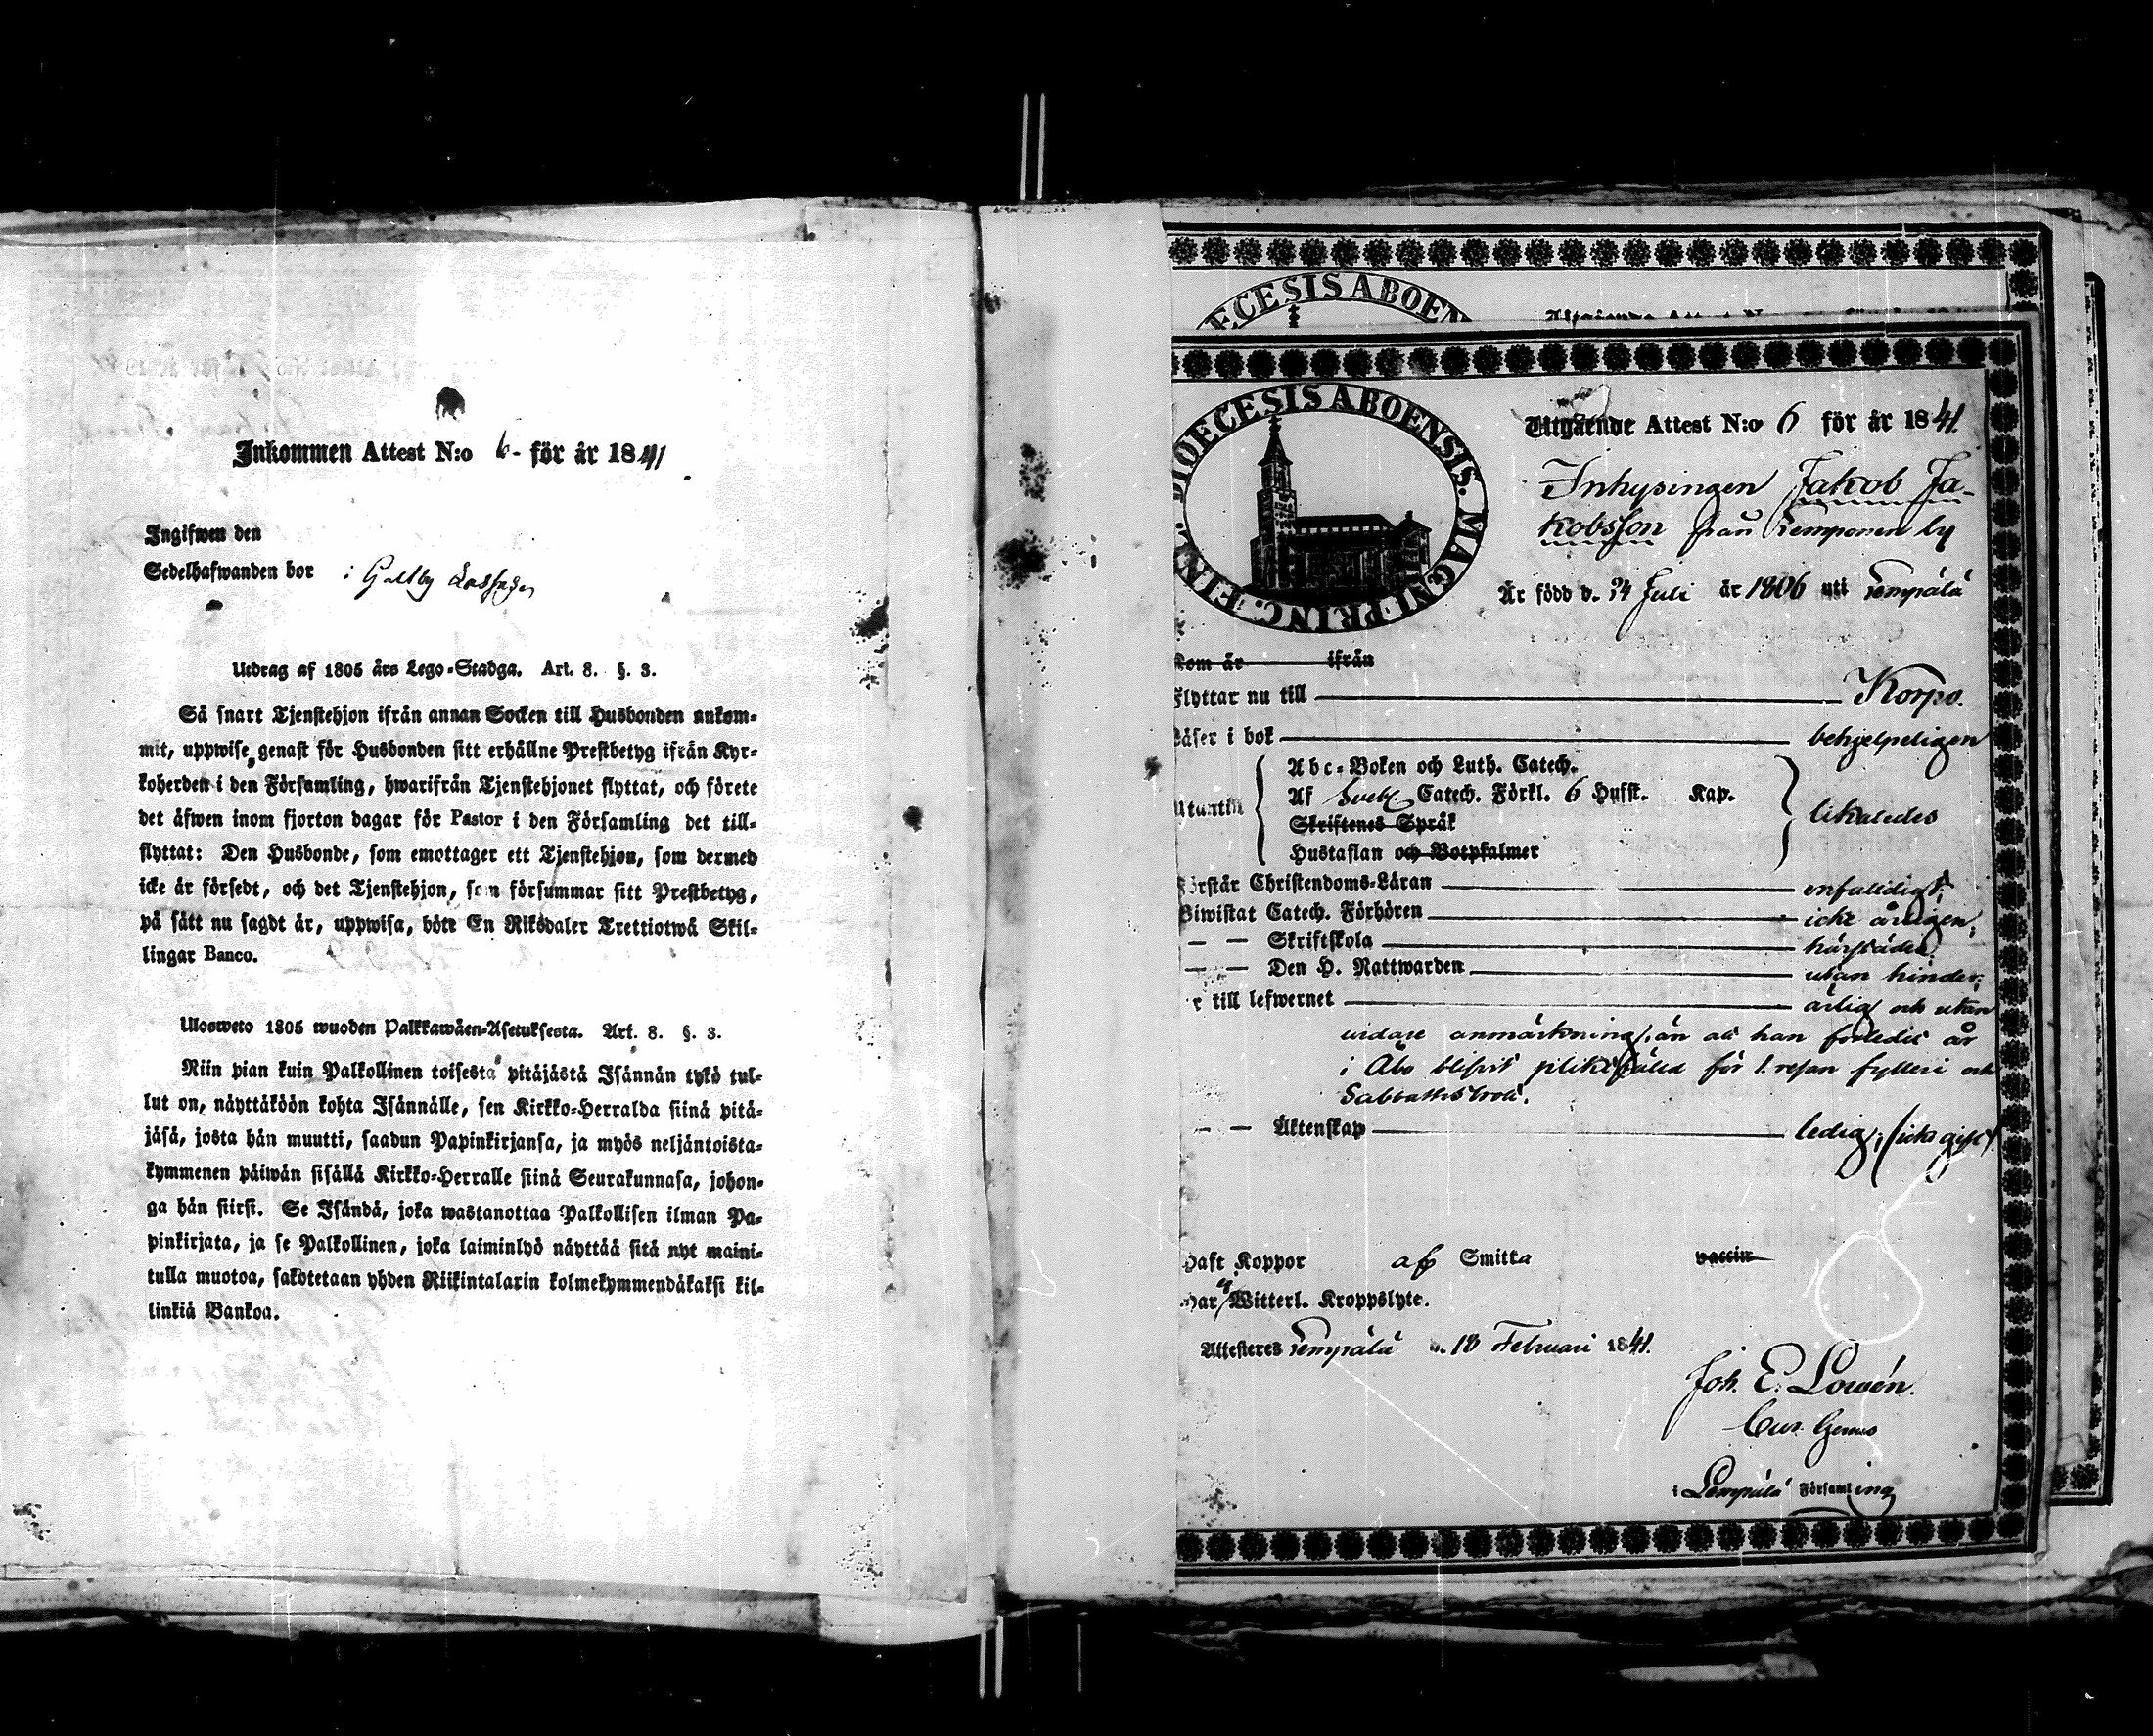 Inkommen Attest N:o 6- för år 1841
Ingifwen den
Sedelhafwanden bor i Galtby
Utdrag af 1805 års Lego-Stadga. Art. 8. §. 3.
Så snart Tjenstehjon ifrån annan Socken till Husbonden ankom-
mit, uppwise genast för Husbonden sitt erhållne Prestbetyg ifrån Kyr-
koherden i den Församling, hwarifrån Tjenstehjonet flyttat, och förete
det äfwen inom fjorton dagar för Pastor i den Församling det till-
flyttat: Den Husbonde, som emottager ett Tjenstehjon, som dermed
icke är försedt, och det Tjenstehjon, som försummar sitt Prestbetyg,
på sätt nu sagdt är, uppwisa, böte En Riksdaler Trettiotwå Skil-
lingar Banco.
Ulosweto 1805 wuoden Palkkawäen-Asetuksesta. Art. 8. §. 3.
Niin pian kuin Palkollinen toisesta pitäjästä Isännän tykö tul-
lut on, näyttäköön kohta Isännälle, sen Kirkko-Herralda siinä pitä-
jäsä, josta hän muutti, saadun Papinkirjansa, ja myös neljäntoista-
kymmenen päiwän sisällä Kirkko-Herralle siinä Seurakunnasa, johon-
ga hän siirsi. Se Isändä, joka wastanottaa Palkollisen ilman Pa-
pinkirjata, ja se Palkollinen, joka laiminlyö näyttää sitä nyt maini-
tulla muotoa, sakotetaan yhden Riikintalarin kolmekymmendäkaksi kil-
linkiä Bankoa.
DIOECESIS ABOENSIS. MAGNI PRINC. FINL.
Utgående Attest N:o 6 för år 1841.
Inhysingen Jakob Ja-
kobsson från Lemponen by
Är född d. 24 Juli år 1806 uti Lempälä
Kom år ifrån
Flyttar nu till Korpo.
Läser i bok behjelpeligen
Utantill
Abc-Boken och Luth. Catech.
Af Svebl. Catech. Förkl. 6 Hufst. Kap.
Skriftenes Språk
Hustaflan och Botpsalmer
likaledes
Förstår Christendoms-Läran enfaldigt;
Biwistat Catech. Förhören icke årligen;
— — Skriftskola härstädes;
— — Den H. Nattwarden utan hinder;
r till lefwernet ärlig och utan
vidare anmärkning, än att han förledit år
i Åbo blifvit pliktfäld för 1. resan fylleri och
Sabbathsbrott.
— — Äktenskap ledig, (icke gift).
Haft Koppor af Smitta vaccin
Har ej Witterl. Kroppslyte.
Attesteres Lempälä d. 18 Februari 1841.
Joh. E. Lowén.
i Lempälä Församling